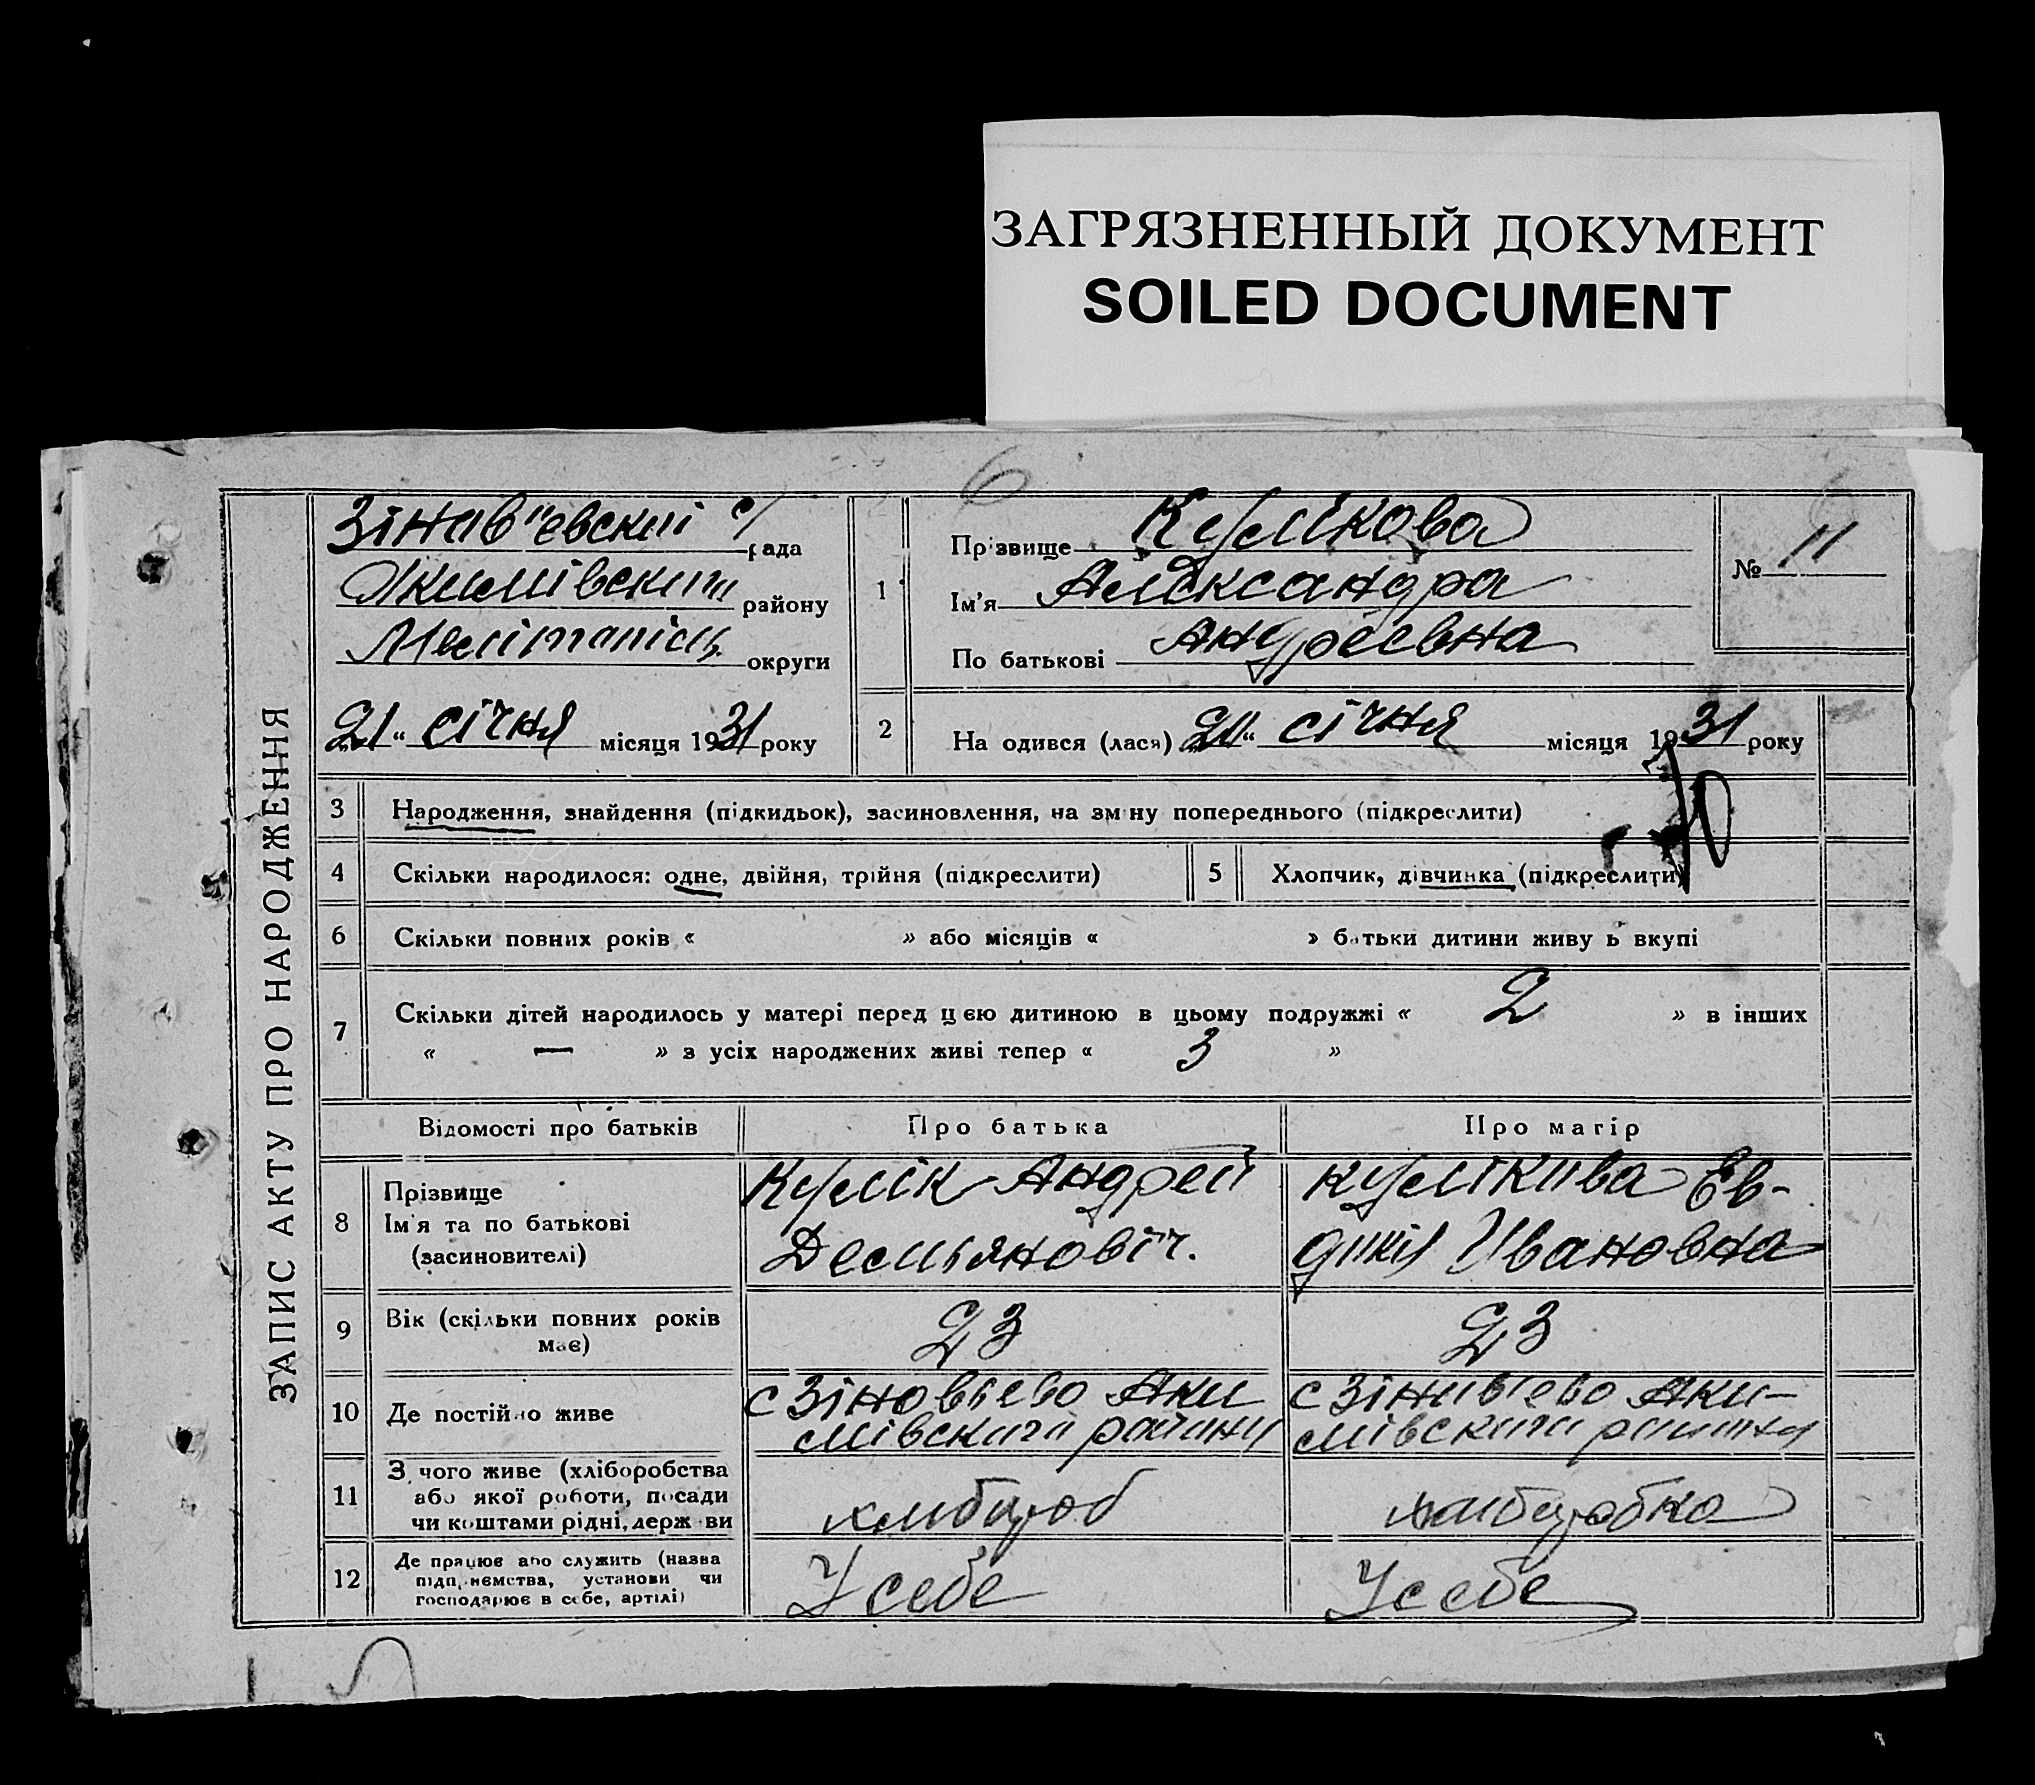 ЗАГРЯЗНЕННЫЙ ДОКУМЕНТ
SOILED DOCUMENT
6
ЗАПИС АКТУ ПРО НАРОДЖЕННЯ
Зінав'евский с/ рада
Якимівского району
Мелітопіль. округи
21 " січня місяця 1931 року
1
Прізвище Кулікова
Ім'я Александра
По батькові Андреевна
№ 11
2
Народився (лася) 20 " січня місяця 1931 року
3 Народження, знайдення (підкидьок), засиновлення, на зміну попереднього (підкреслити)
4 Скільки народилося: одне, двійня, трійня (підкреслити) 5 Хлопчик, дівчинка (підкреслити)
6 Скільки повних років « » або місяців « » батьки дитини живуть вкупі
7 Скільки дітей народилось у матері перед цією дитиною в цьому подружжі « 2 » в інших
« — » з усіх народжених живі тепер « 3 »
Відомості про батьків Про батька Про матір
8 Прізвище
Ім'я та по батькові
(засиновителі)
Кулік Андрей
Демьяновіч.
Кулікова Ев-
дикія Ивановна
9 Вік (скільки повних років
має)
23 23
10 Де постійно живе
с Зіновьево Аки
мівского району
с Зіновьево Аки-
мівского району
11 З чого живе (хліборобства
або якої роботи, посади
чи коштами рідні, держави
хлибороб хлиборобка
12 Де працює або служить (назва
підприємства, установи чи
господарює в себе, артілі)
У себе У себе